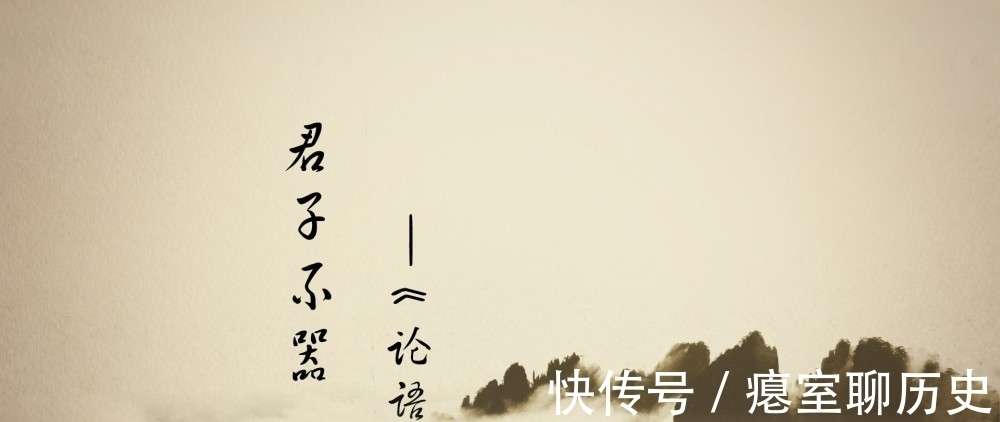 君子不器
—《论语
快传号 / 瘪室聊历史